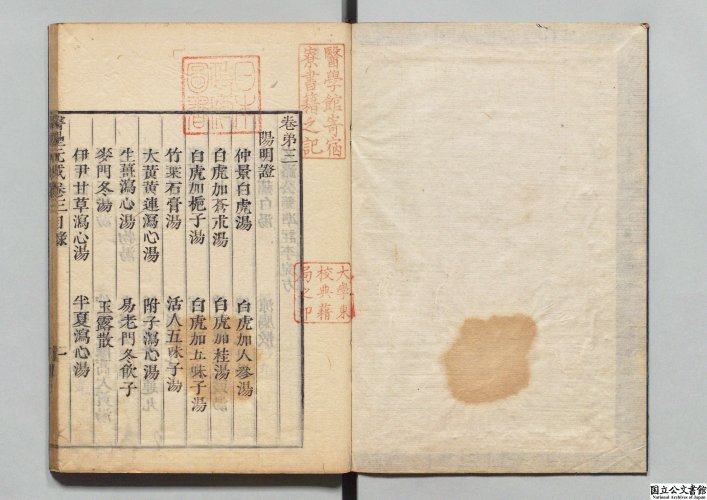 醫學館寄宿
寮書籍之記
大學東
校典藉
局之印
卷第三
陽明證
仲景白虎湯　白虎加人參湯
白虎加蒼朮湯　白虎加桂湯
白虎加梔子湯　白虎加五味子湯
竹葉石膏湯　活人五味子湯
大黃黃連瀉心湯　附子瀉心湯
生薑瀉心湯　易老門冬飲子
麥門冬湯　玉露散
伊尹甘草瀉心湯　半夏瀉心湯
醫壘元戎卷三目錄　一
国立公文書館
National Archives of Japan